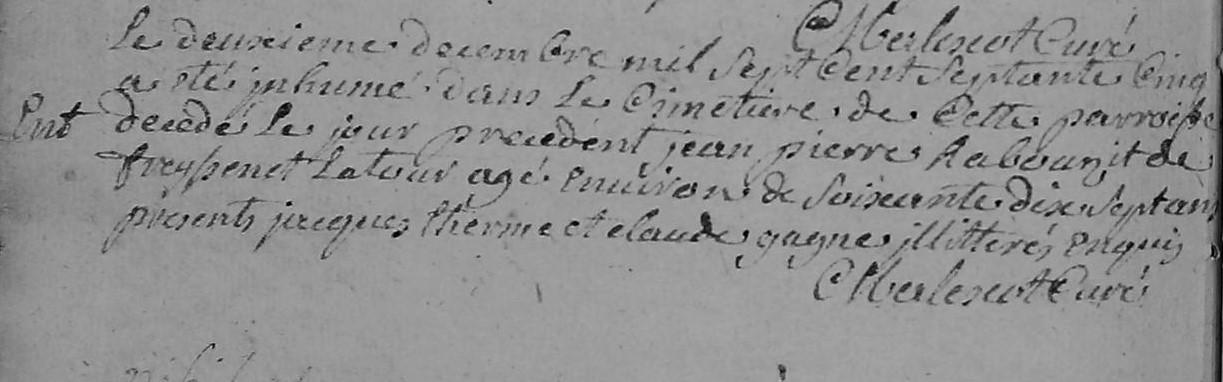 Merlescot Curé
Le deuxieme decembre mil Sept Cent Septante Cinq
a eté jnhumé dans Le Cimetiere de Cette parroisse
Ent decedé Le jour precedent jean pierre Rabouzit de
freyssenet Latour agé Environ de soixante dix sept ans
presents jacques therme et claude gagne jllitterés Enquis
Merlescot Curé